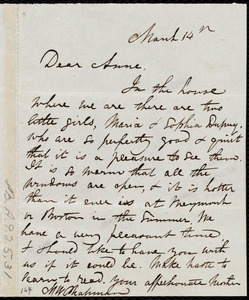 March 14th
Dear Anne.
In the house
where we are there are two
little girls, Maria & Sophia Dupuy,
who are so perfectly good & quiet
that it is a pleasure to see them.
It is so warm that all the
windows are open, & it is hotter
than it ever is at Weymouth
or Boston in the Summer. We
have a very pleasant time
& I should like to have you with
us if it could be. Make haste &
learn to read. Your affectionate